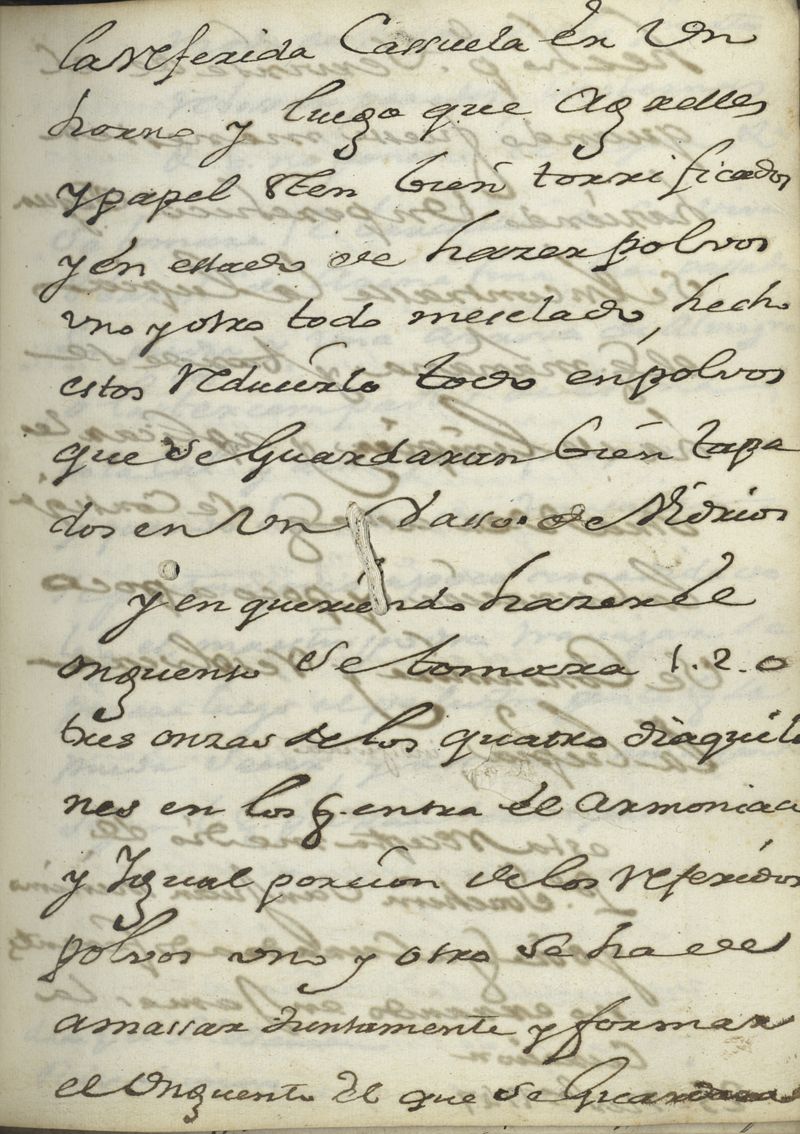 la referida Cassuela en Un
horno y luego que Aquelles
y papel Sten bien torrificados
y én estado de hazer polvos
uno y otro todo mesclado, hecho
estos reduuirlo todo én polvos
que se Guardaran bien tapa
dos en Un Vasso de Vidrios
y en queriendo hazer el
onguento se tomara 1. 2. o
tres onzas de los quatro diaquilo
nes en los q. entra el armoniaco
y Igual porcion de los referidos
polvos uno y otro se ha de
amassar Juntamente y formar
el Unguento el que se Guardara